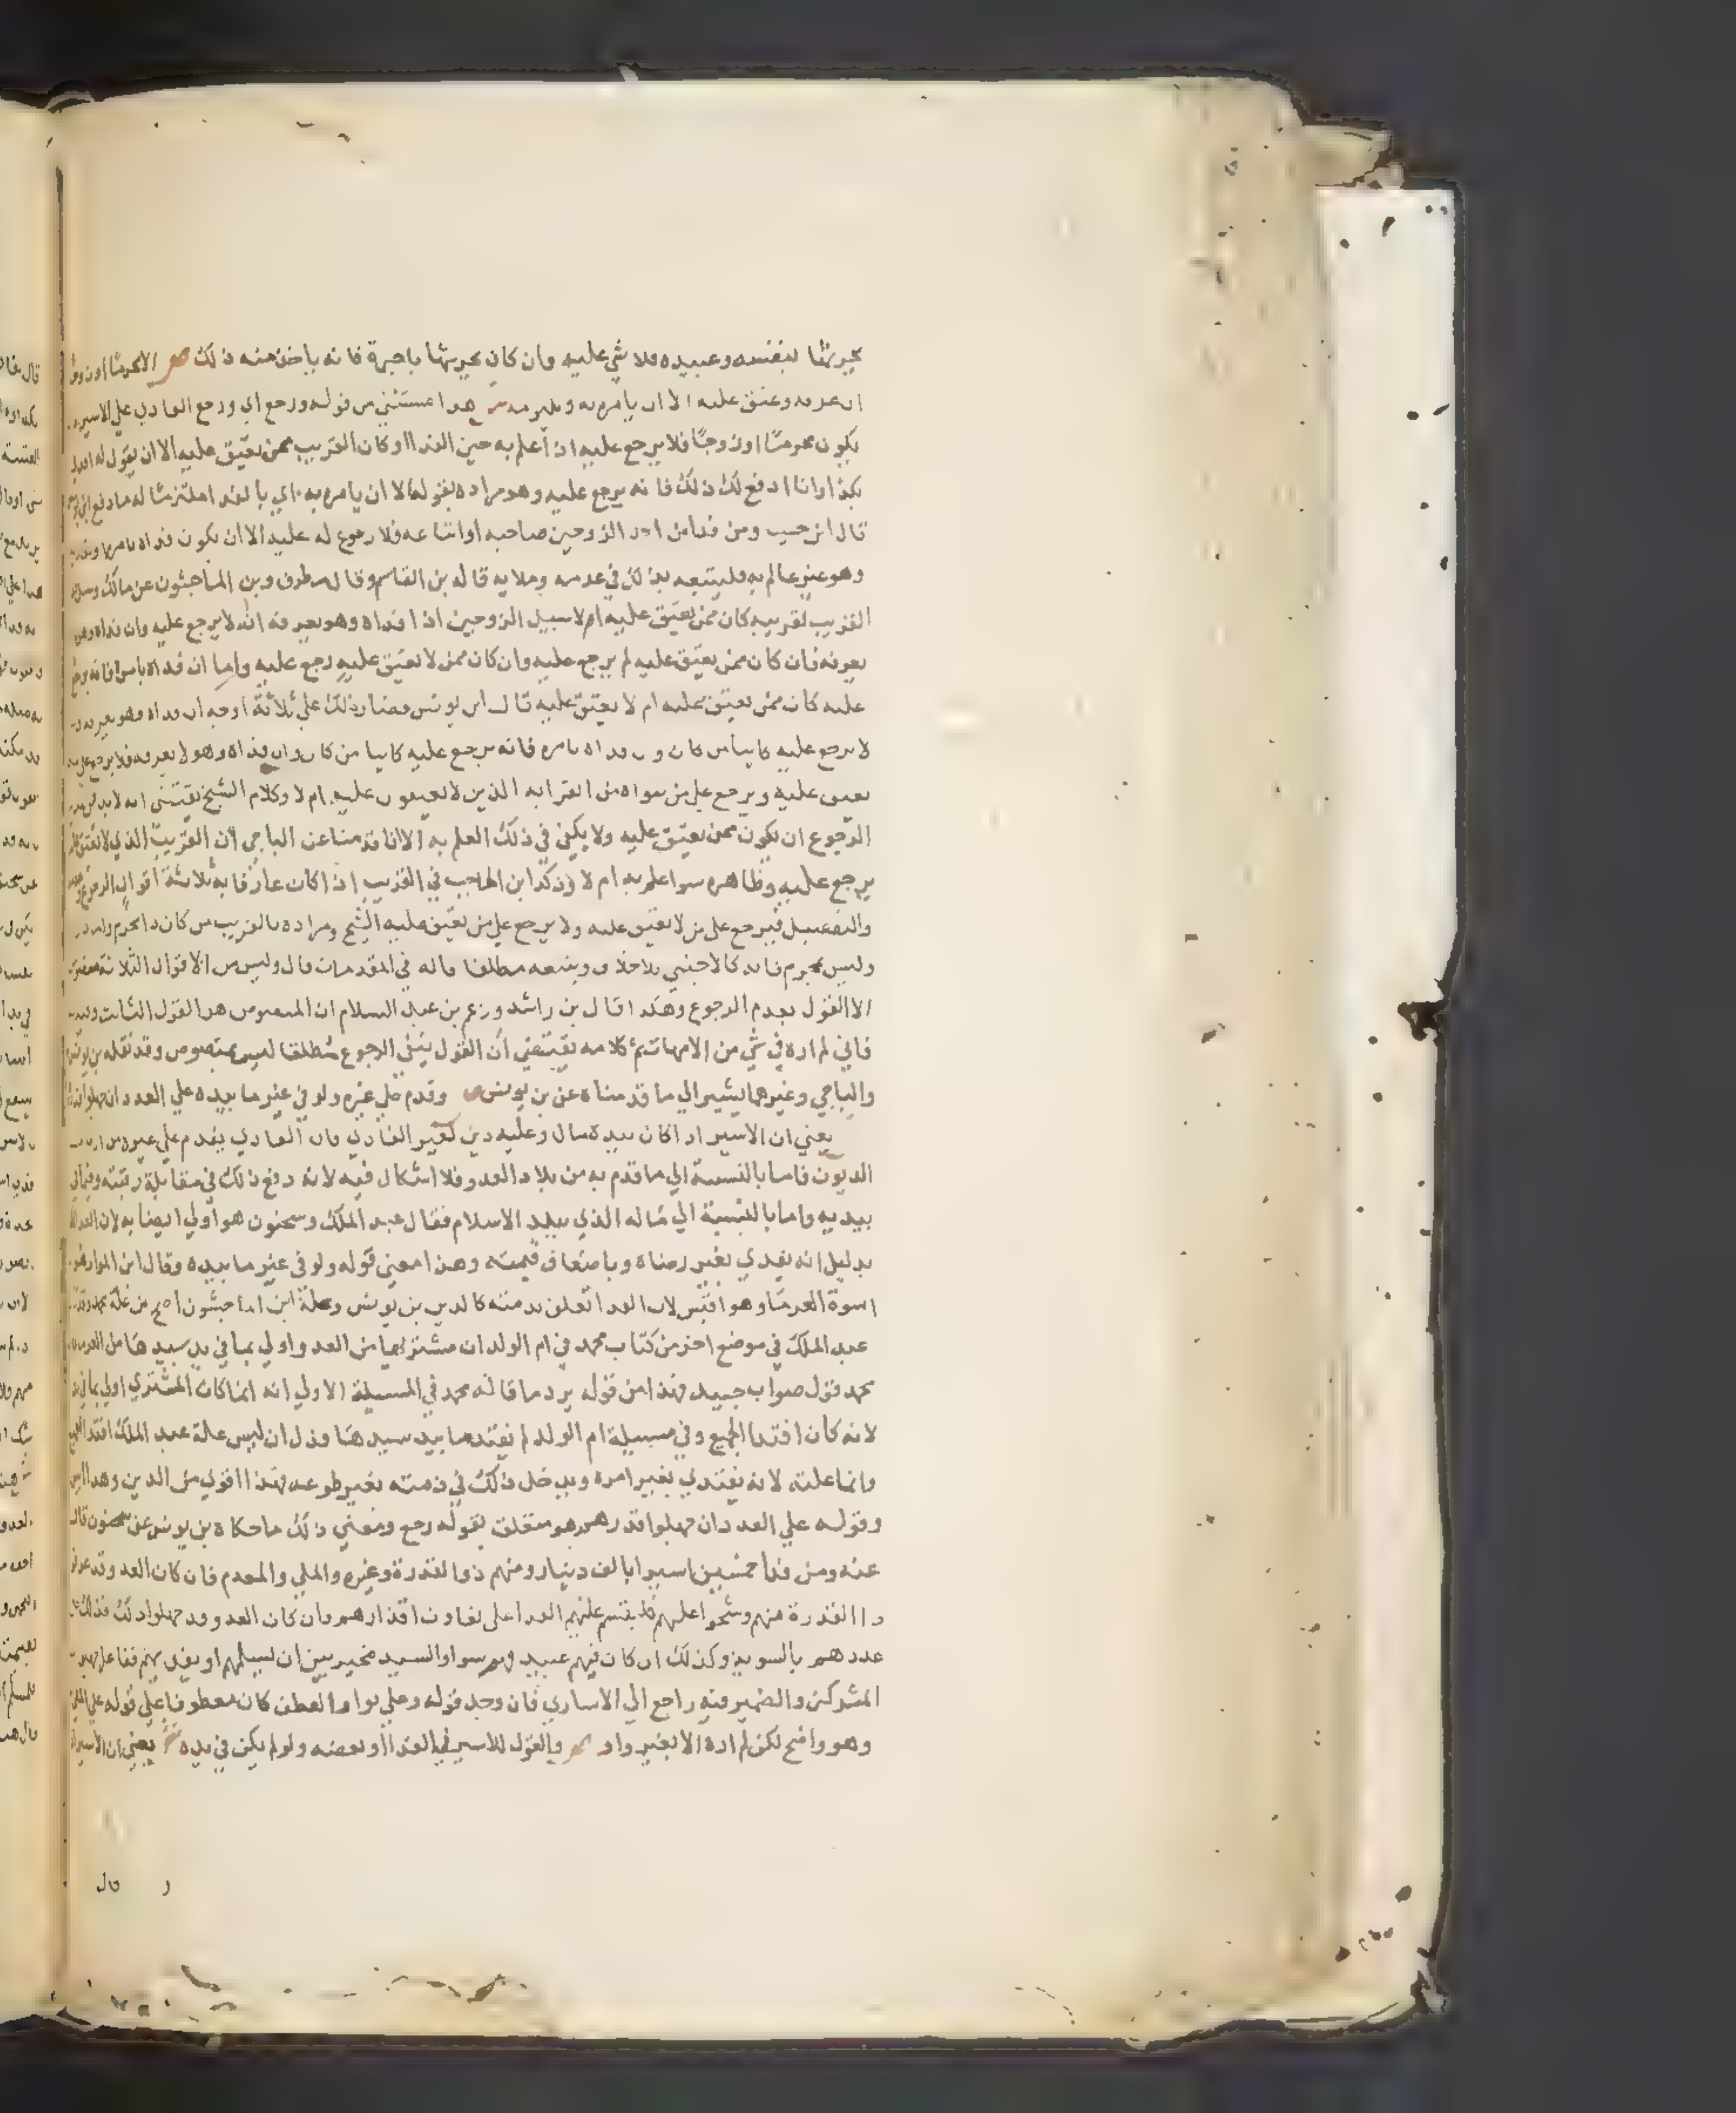 يحرثها بنفسه وعبيده فلا شي عليه وان كان يحرثها باجرة فانه ياخذ منه ذلك ص الا محرما او زوجا
ان عرفه وعتق عليه الا ان يامره به ويلتزمه ش هذا مستثني من قوله ورجع اي ورجع الفادي علي الاسير
يكون محرما او زوجا فلا يرجع عليه اذا علم به حين الفدا او كان القريب ممن يعتق عليه الا ان يقول له افدني
بكذا وانا ادفع لك ذلك فانه يرجع عليه وهو مراده بقوله الا ان يامره به اي بالفدا ملتزما له ما دفع
قال ابن حبيب ومن فدا من احد الزوجين صاحبه او ابتاعه فلا رجوع له عليه الا ان يكون فداه بامره
وهو غير عالم به فليتبعه بذلك في عدمه وملايه قاله بن القاسم وقال مطرف وبن الماجشون عن مالك
القريب لقريبه كان ممن يعتق عليه ام لا سبيل الزوجين اذا فداه وهو يعرفه انه لا يرجع عليه وان فداه وهو
يعرفه فان كان ممن يعتق عليه لم يرجع عليه وان كان ممن لا يعتق عليه رجع عليه واما ان فداه بامره فانه يرجع
عليه كان ممن يعتق عليه ام لا يعتق عليه قال ابن يونس فصار ذلك علي ثلاثة اوجه ان فداه وهو يعرفه
لا يرجع عليه كاينا من كان وان فداه بامره فانه يرجع عليه كاينا من كان وان فداه وهو لا يعرفه فلا يرجع
يعتق عليه ويرجع علي من سواه من القرابه الذين لا يعتقون عليه ام لا وكلام الشيخ يقتضي انه لا بد
الرجوع ان يكون ممن يعتق عليه ولا يكفي في ذلك العلم به الا انا قدمنا عن الباجي ان القريب الذي لا يعتق
يرجع عليه وظاهره سوا علم به ام لا وذكر ابن الحاجب في القريب اذا كان عارفا به ثلاثة اقوال الرجوع
والتفصيل فيرجع علي من لا يعتق عليه ولا يرجع علي من يعتق عليه الشيخ ومراده بالقريب من كان ذا محرم
وليس بمحرم فانه كالاجنبي بلا خلاف ويتبعه مطلقا قاله في المقدمات قال وليس من الاقوال الثلاثة
الا القول بعدم الرجوع وهكذا قال بن راشد وزعم بن عبد السلام ان المنصوص هو القول الثالث
فاني لم اره في شي من الامهات ثم كلامه يقتضي ان القول بنفي الرجوع مطلقا ليس بمنصوص وقد نقله بن يونس
والباجي وغيرهما يشير الي ما قدمناه عن بن يونس ص وقدم علي غيره ولو في غير ما بيده علي العدد ان جهلوا قدرهم
يعني ان الاسير اذا كان بيده مال وعليه دين لغير الفادي فان الفادي يقدم علي غيره من ارباب
الديون فاما بالنسبة الي ما قدم به من بلاد العدو فلا اشكال فيه لانه دفع ذلك في مقابلة رقبته وفيما في
بيديه واما بالنسبة الي ماله الذي ببلد الاسلام فقال عبد الملك وسحنون هو اولي ايضا به لان الفدا
بدليل انه يفدي بغير رضاه وباضعاف قيمته وهذا معني قوله ولو في غير ما بيده وقال ابن المواز هو
اسوة الغرما وهو اقيس لان الفدا تعلق بذمته كالدين بن يونس وعلة ابن الماجشون اصح من علة محمد وقد
عبد الملك في موضع اخر من كتاب محمد في ام الولد ان مشتريها من العدو اولي بما في يد سيدها من الغرما
محمد فقول صواب جيد فهذا من قوله يرد ما قاله محمد في المسيلة الاولي انه انما كان المشتري اولي بما في يد
لانه كان افتدا الجميع وفي مسيلة ام الولد لم يفتد ما بيد سيدها فدل ان ليس علة عبد الملك افتدا الجميع
وانما علته لانه يفتدي بغير امره ويدخل ذلك في ذمته بغير طوعه فهذا اقوي من الدين وهذا
وقوله علي العدد ان جهلوا قدرهم هو متعلق بقوله رجع ومعني ذلك ما حكاه بن يونس عن سحنون قال
عنه ومن فدا خمسين اسيرا بالف دينار ومنهم ذو القدرة وغيره والملي والمعدم فان كان العدو قد عرفوا
ذا القدرة منهم وشحوا عليهم فليقسم عليهم الفدا علي تفاوت اقدارهم وان كان العدو قد جهلوا ذلك فذلك علي
عددهم بالسويه وكذلك ان كان فيهم عبيد فهم سوا والسيد مخير بين ان يسلمهم او يفديهم
المشركين والضمير فيه راجع الي الاساري فان وجد قوله وعلي بواو العطف كان معطوفا علي قوله علي
وهو واضح لكن لم اره الا بغير واو ص والقول للاسير في الفدا او بعضه ولو لم يكن في يده ش يعني ان الاسير